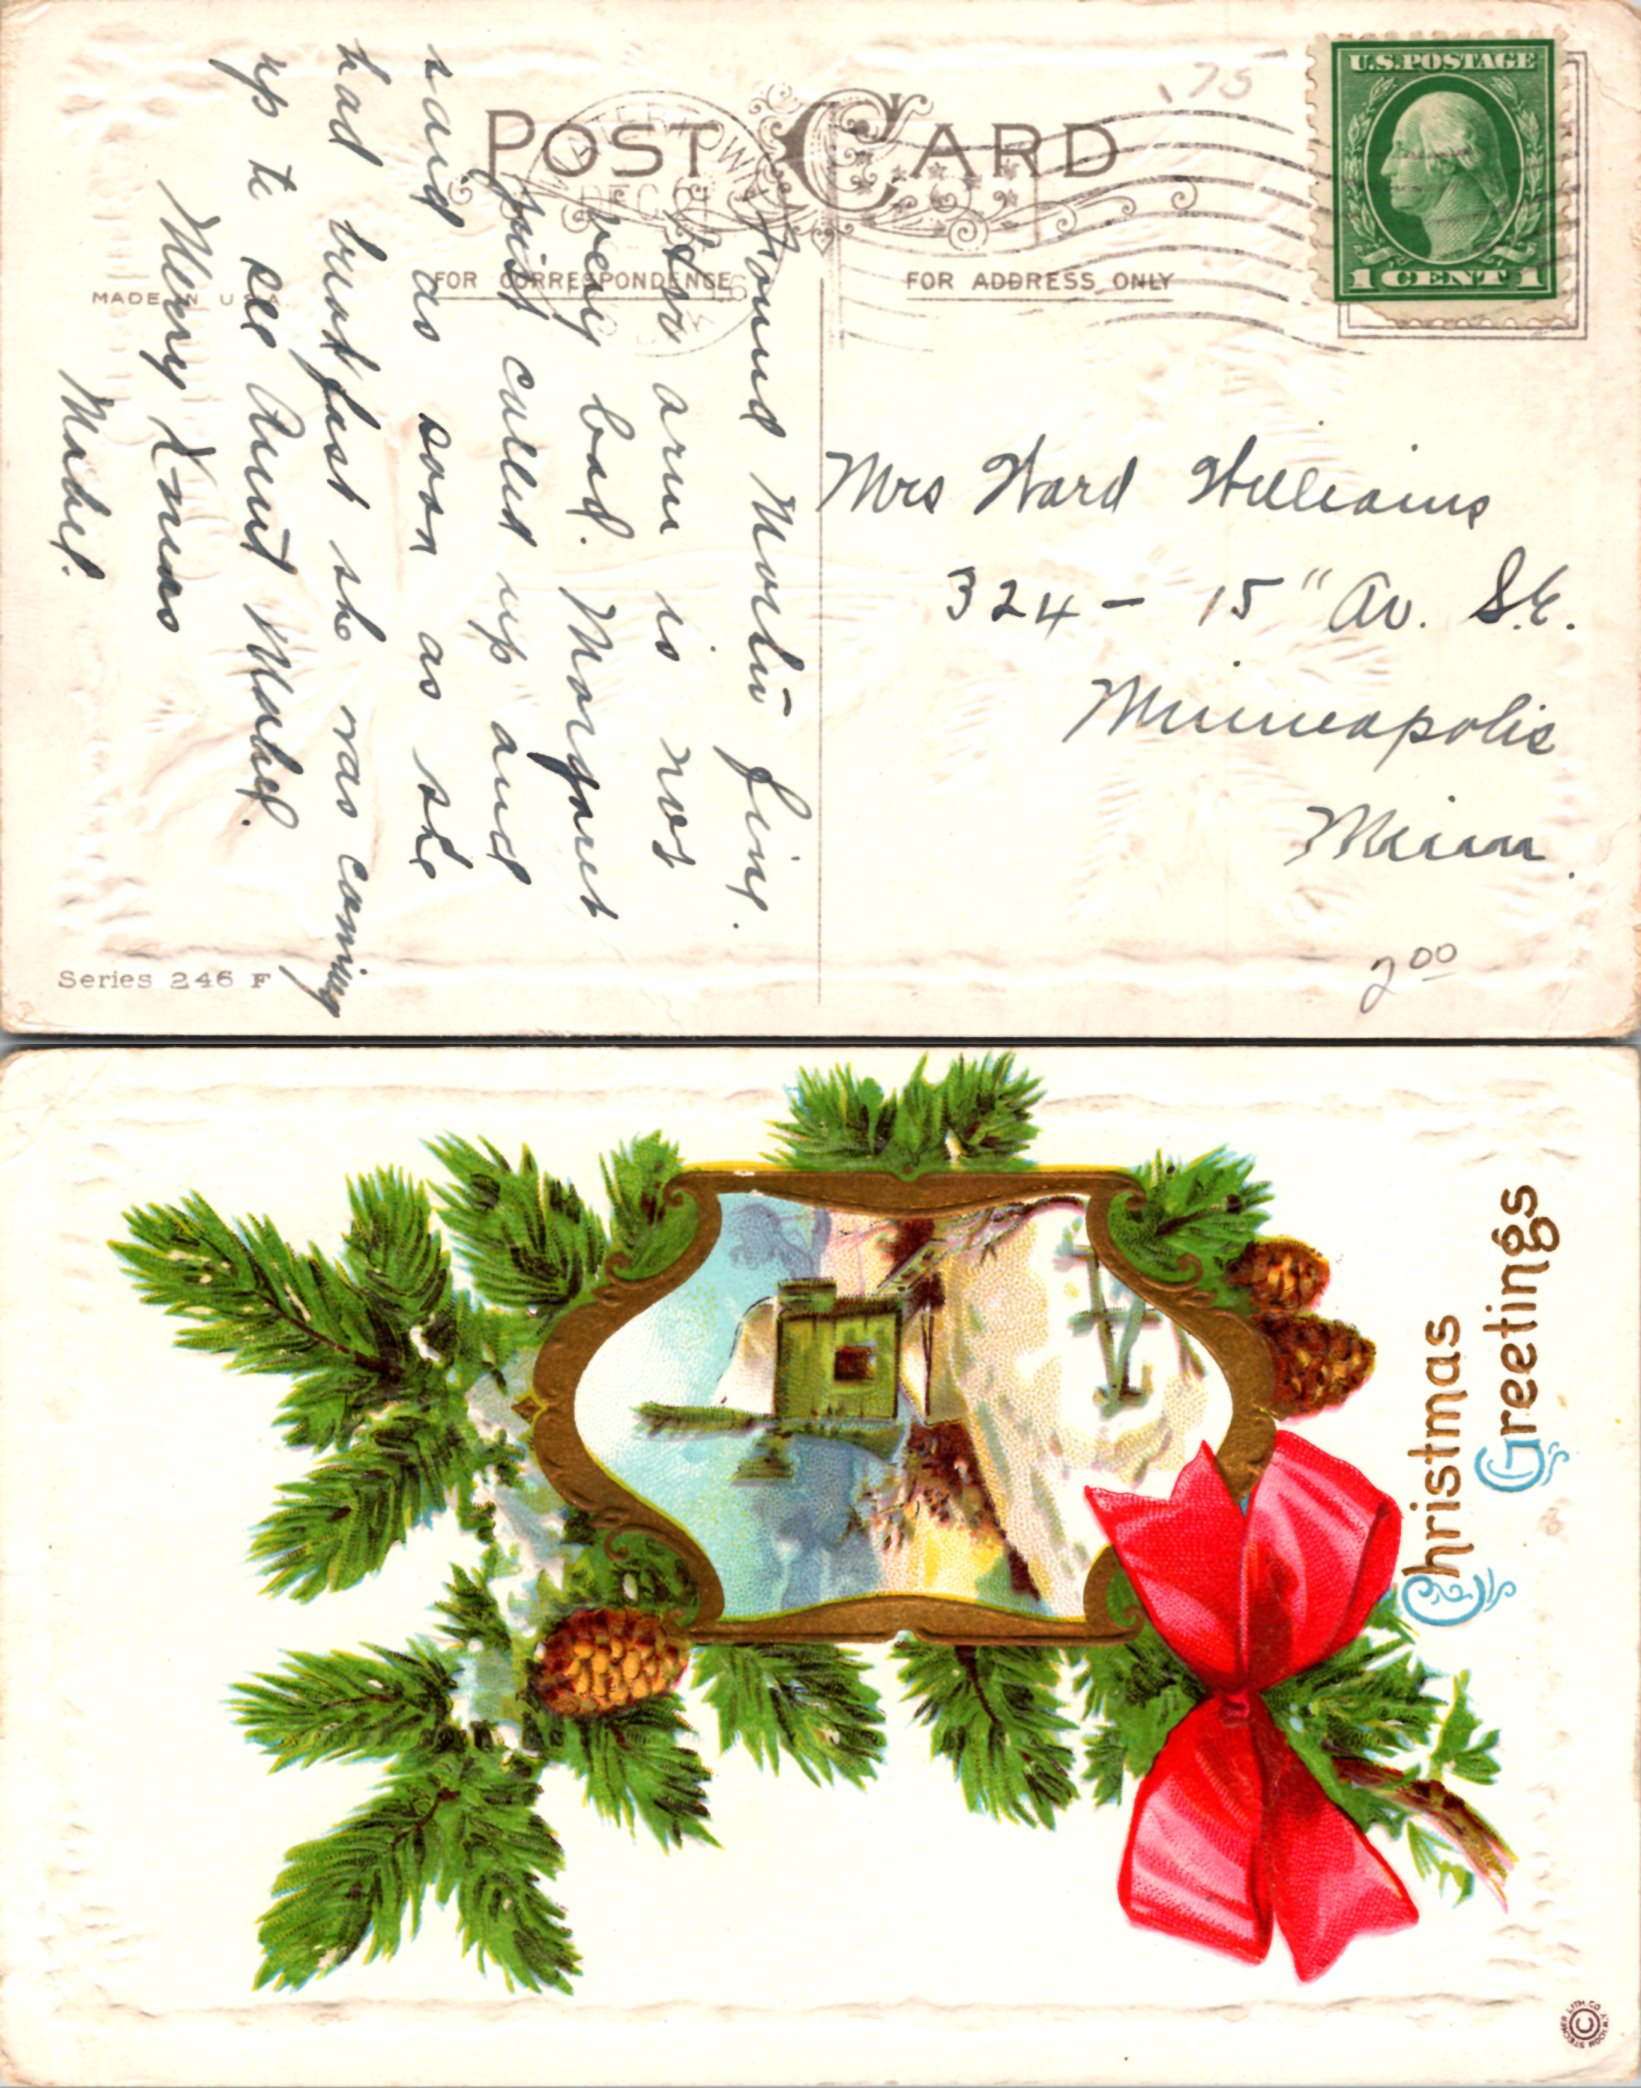 POST CARD
FOR CORRESPONDENCE
FOR ADDRESS ONLY
MADE IN U.S.A.
WATERTOWN
DEC 21
U.S. POSTAGE
1 CENT 1
.75
Found fine.
arm is not
very bad. Margaret
just called up and
said as soon as she
had breakfast she was coming
up to see Aunt Mabel.
Merry Xmas
Mabel.
Mrs Ward Williams
324 - 15" Av. S.E.
Minneapolis
Minn.
2 00
Series 246 F
Christmas
Greetings
STECHER LITH. CO. ROCH. N.Y.
©